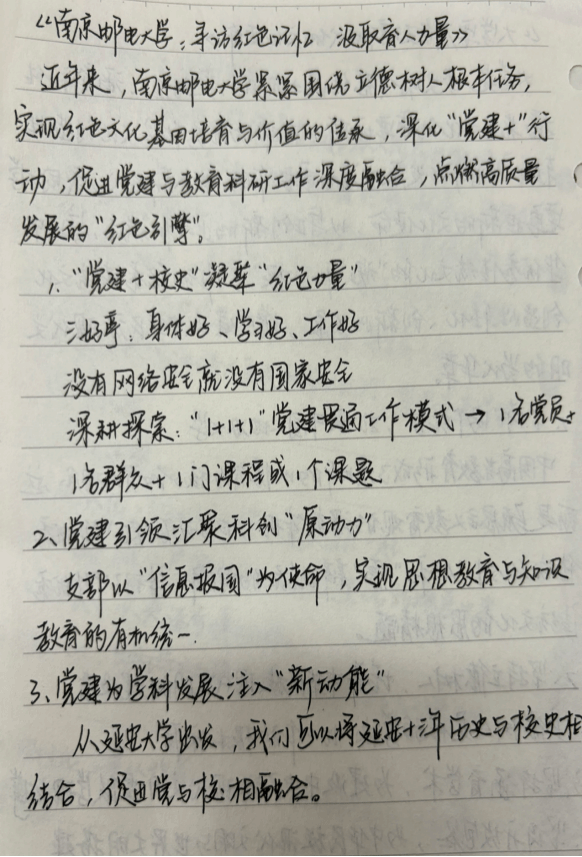 《南京邮电大学：寻访红色记忆 汲取育人力量》
近年来，南京邮电大学紧紧围绕立德树人根本任务，
实现红色文化基因培育与价值的传承，深化“党建+”行
动，促进党建与教育科研工作深度融合，点燃高质量
发展的“红色引擎”。
1、“党建+校史”凝萃“红色力量”
三好：身体好、学习好、工作好
没有网络安全就没有国家安全
深耕探索：“1+1+1”党建贯通工作模式→1名党员+
1名群众+1门课程或1个课题
2、党建引领汇聚科创“原动力”
支部以“信息报国”为使命，实现思想教育与知识
教育的有机统一.
3、党建为学科发展注入“新动能”
从延安大学出发，我们可以将延安十三年历史与校史相
结合，促进党与校相融合。